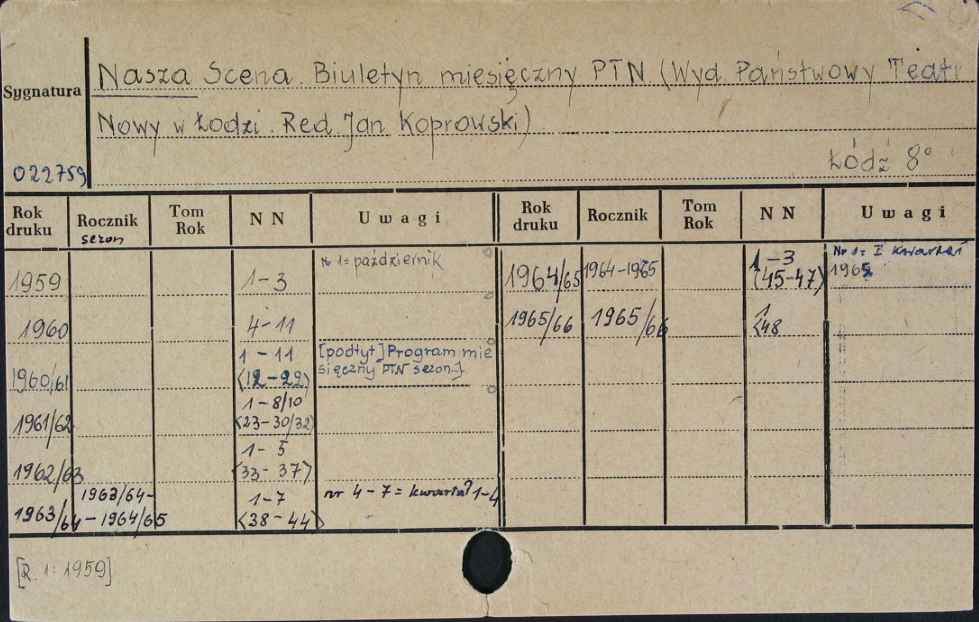 Nasza Scena. Biuletyn miesięczny PTN. (Wyd. Państwowy Teatr
Sygnatura
Nowy w Łodzi. Red. Jan Koprowski)
Łódź 8°
022759
Rok druku Rocznik Tom Rok NN Uwagi Rok druku Rocznik Tom Rok NN Uwagi
sezon
1959 1-3 Nr 1= październik
1960 4-11
1960/61 1-11 <12-22> [podtyt] Program mie
sięczny PTN sezon..]
1961/62 1-8/10 <23-30/32>
1962/63 1-5 <33-37>
1963/64 1963/64-
-1964/65 1-7 <38-44> nr 4-7 = 1-4
1964/65 1964-1965 1-3 (45-47) Nr 1= I kwartał
1965
1965/66 1965/66 1 <48
[R. 1: 1959]